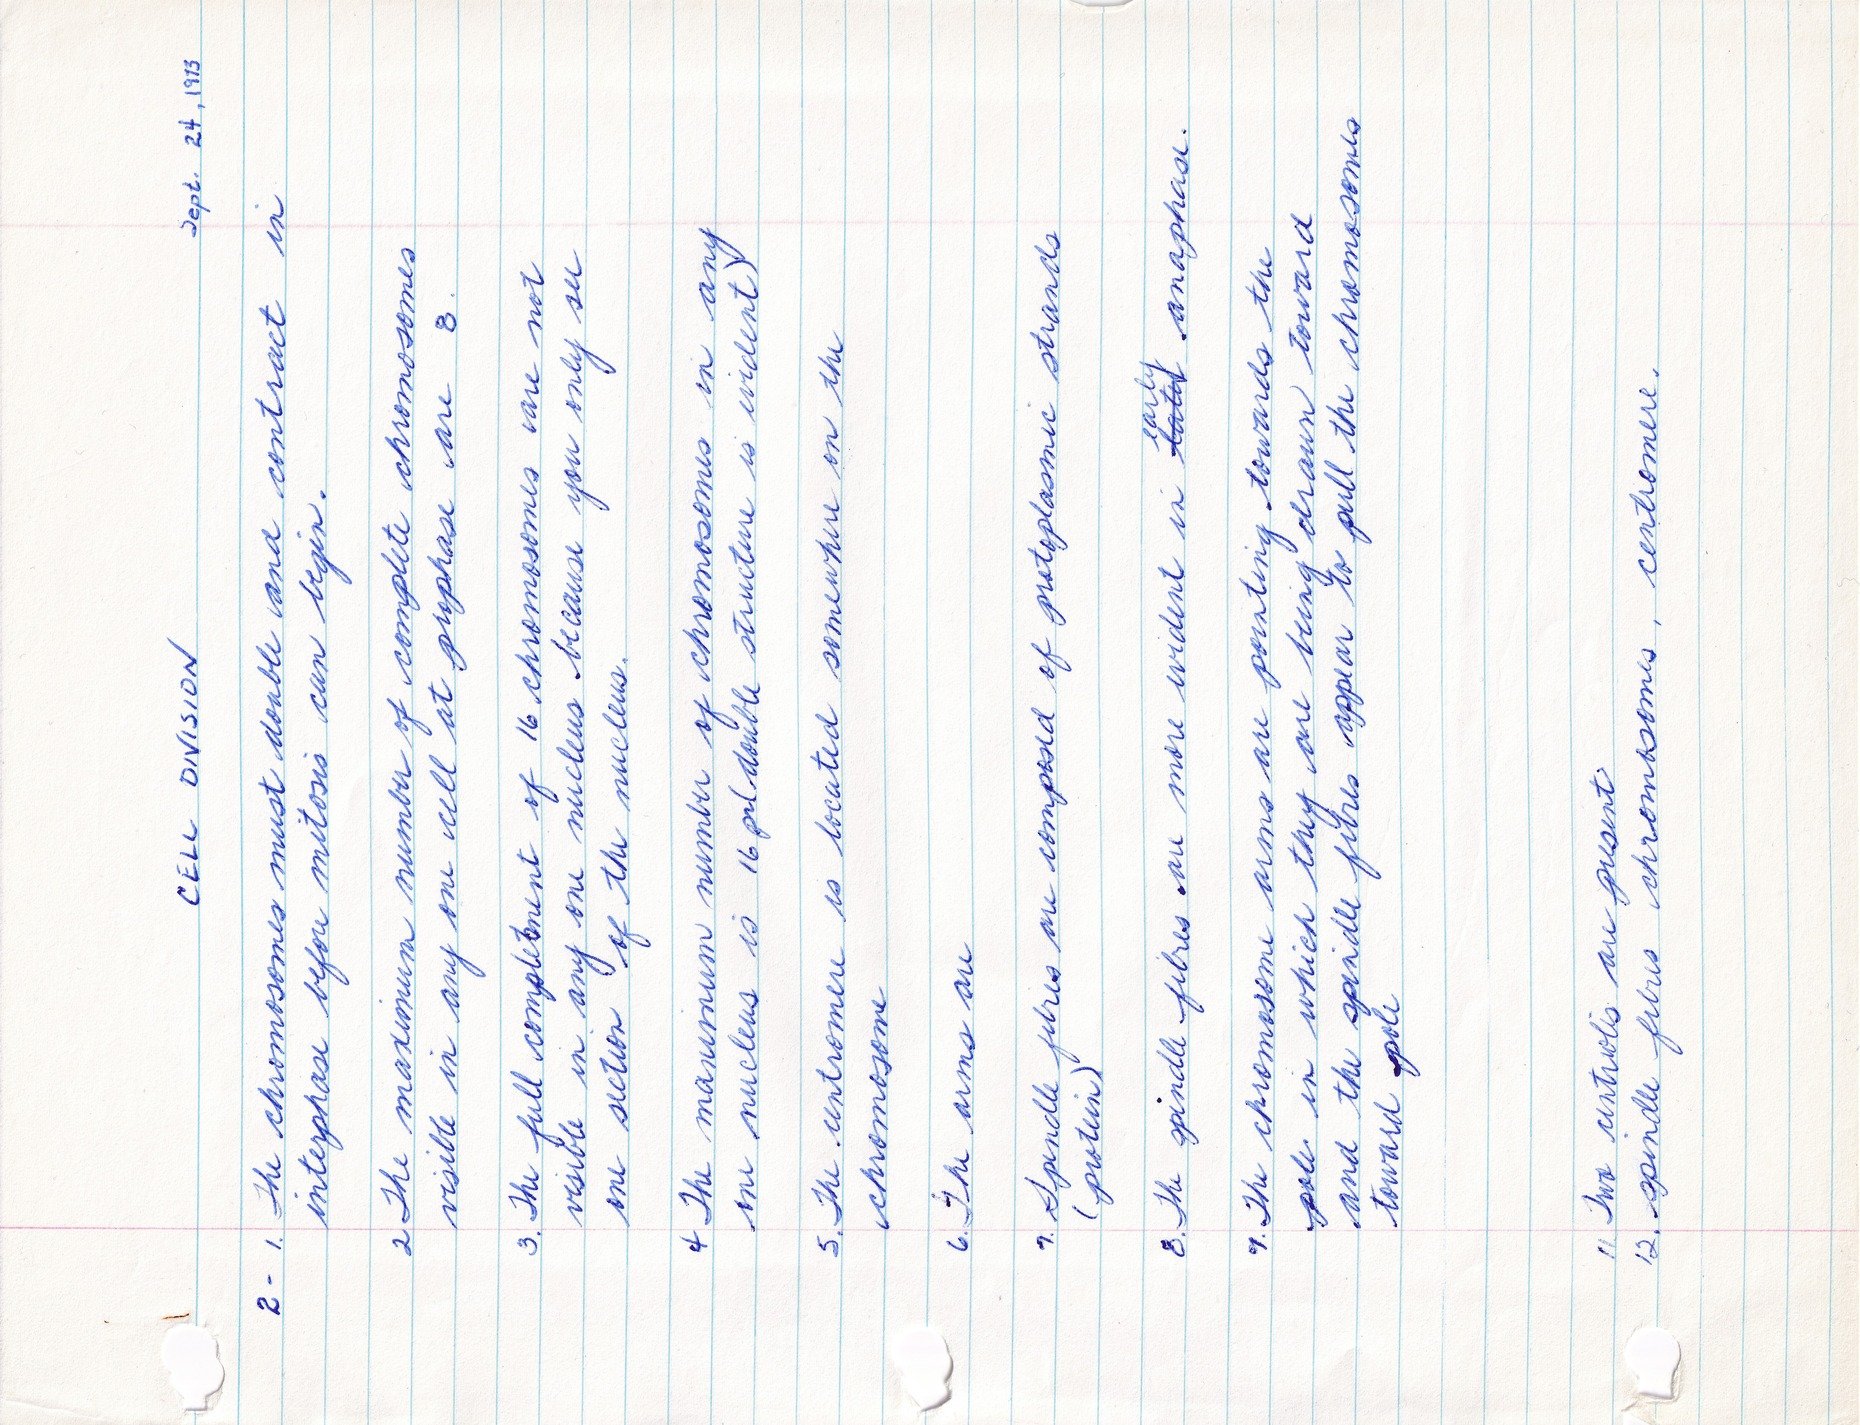 Sept. 24, 1973
CELL DIVISION
2- 1. The chromosomes must double and contract in
interphase before mitosis can begin.
2. The maximum number of complete chromosomes
visible in any one cell at prophase are 8.
3. The full complement of 16 chromosomes are not
visible in any one nucleus because you only see
one section of the nucleus.
4 The maximum number of chromosomes in any
one nucleus is 16 (double structure is evident)
5. The centromere is located somewhere on the
chromosome
6. The arms are
7. Spindle fibres are composed of protoplasmic strands
(protein)
8. The spindle fibres are more evident in early anaphase.
9. The chromosome arms are pointing towards the
pole in which they are being drawn toward
and the spindle fibres appear to pull the chromosomes
toward pole
11 Two centriolis are present.
12. spindle fibres chromosomes, centromere.